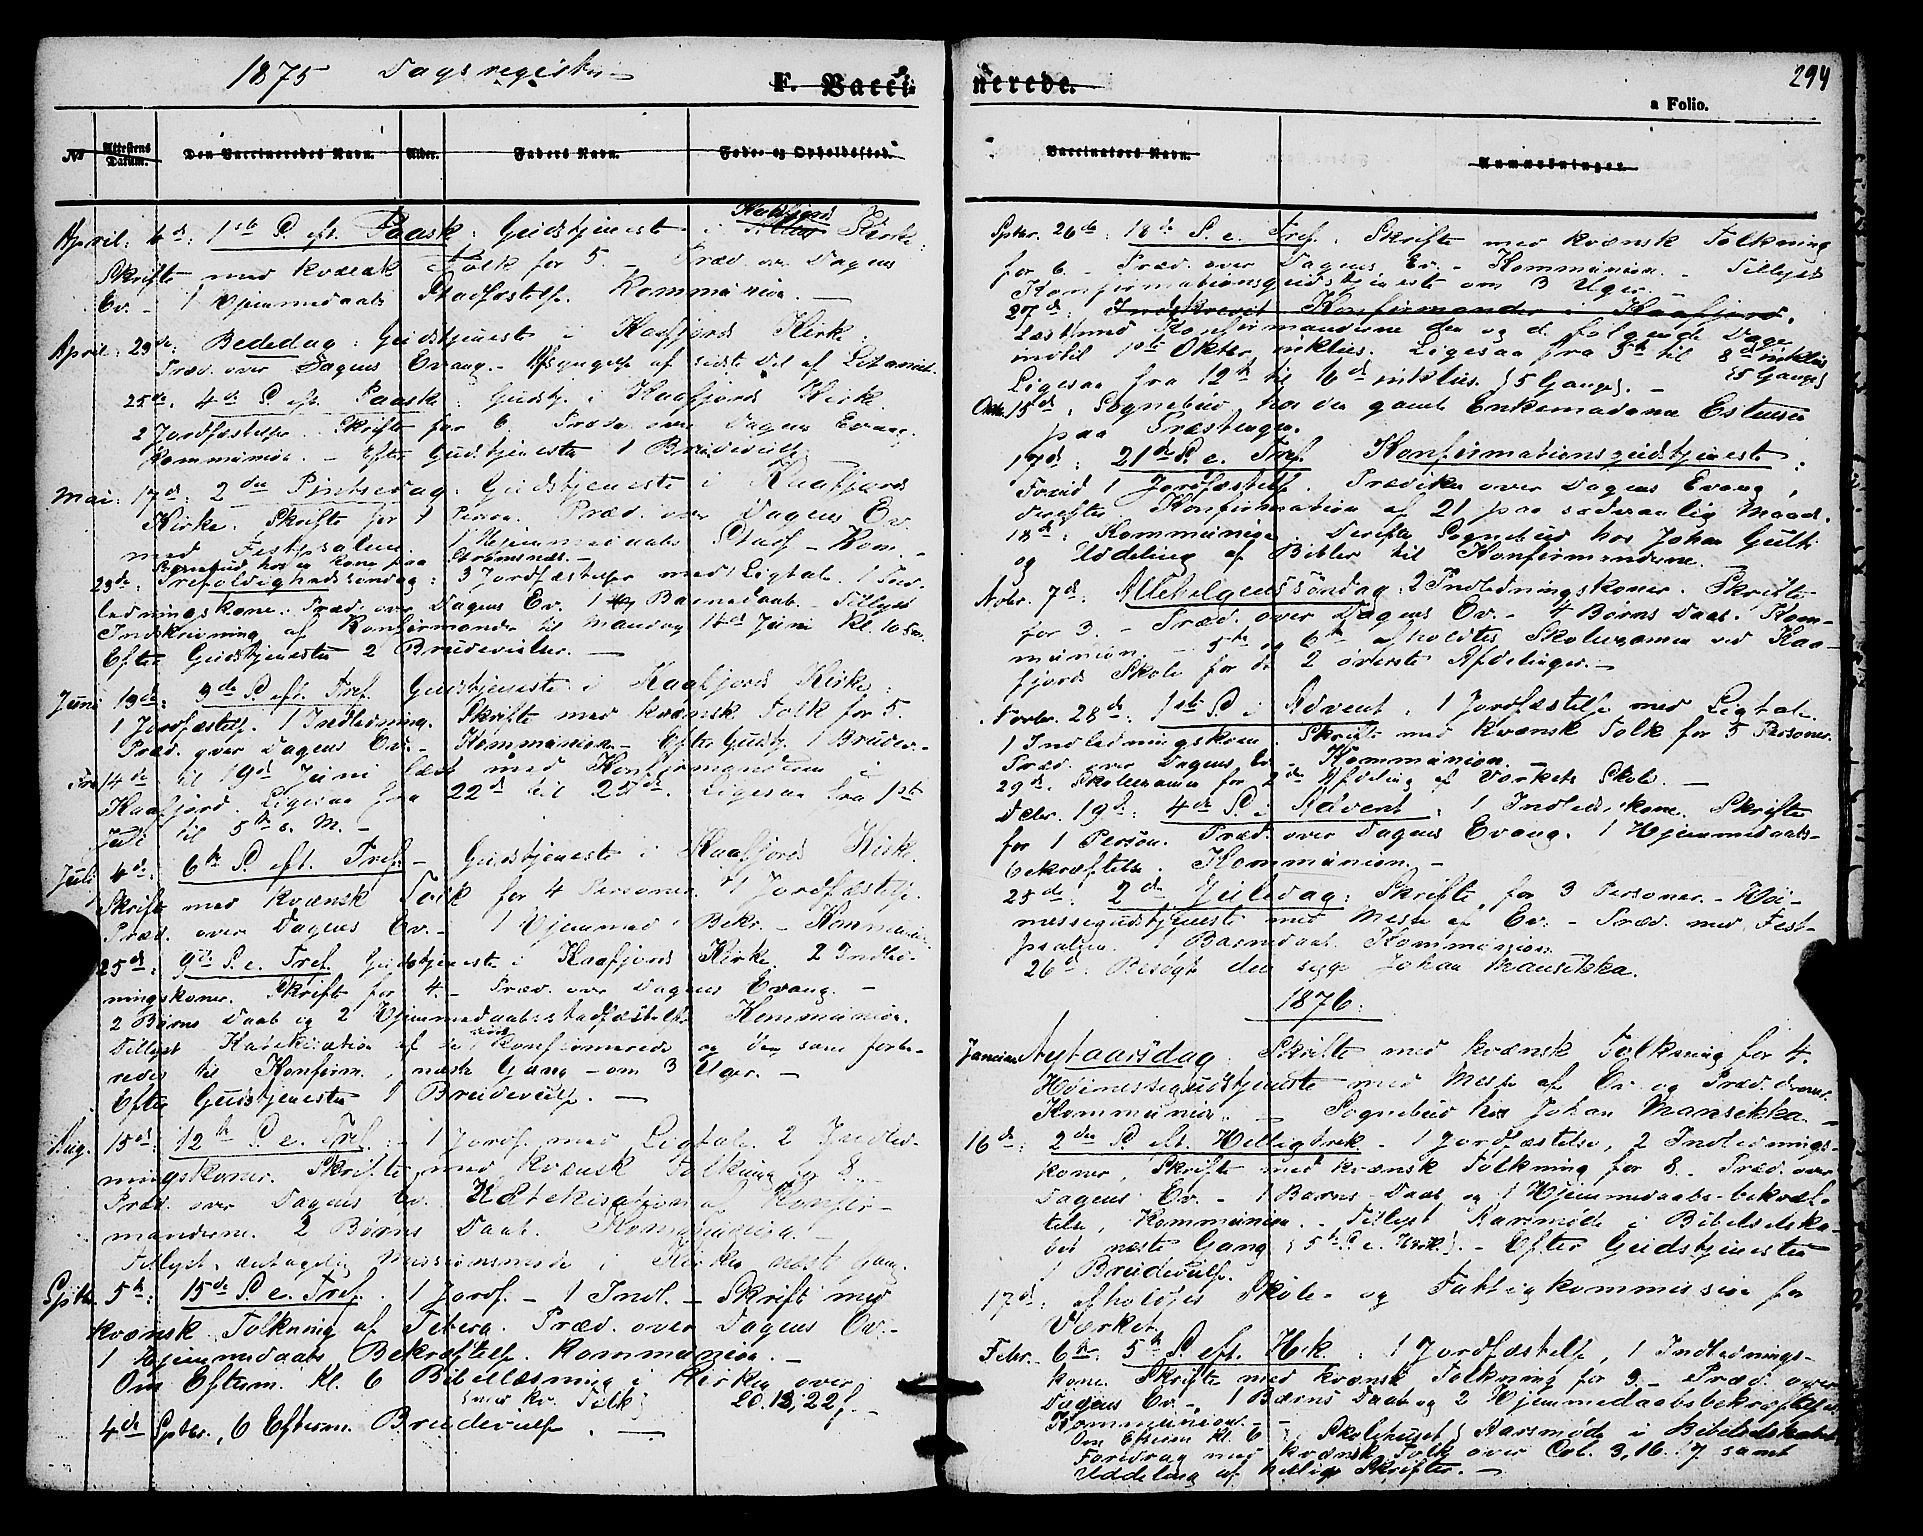 1875 Dagsregister
F. Vacci-
No
Attestens Datum.
Den Vaccineredes Navn.
Alder.
Faders Navn.
Føde- og Opholdssted.
April: 4de: 1ste S. eft. Paask: Gudstjeneste i Kaafjord Kirke:
Skrifte med kvænsk Tolk for 5 - Præd. over Dagens
Ev. - 1 Hjemmedaabs Stadfæstelse. Kommunion. -
April: 23de: Bededag: Gudstjeneste i Kaafjord Kirke:
Præd. over Dagens Evang. - Afsyngelse af sidste Del af Litaniet.
25de: 4de S. eft. Paask: Gudstj. i Kaafjord Kirk.
2 Jordfæstelser. Skrifte for 6. Præd. over Dagens Evang.
Kommunion. - Efter Gudstjenesten 1 Brudevielse
Mai: 17de: 2den Pintsedag. Gudstjeneste i Kaafjord
Kirke. Skrifte for 1 Person. Præd. over Dagens Ev.
med Festpsalmen. 1 Hjemmedaabs Stadf. - Kom. -
Sognebud hos en Kone paa Strømsnæs. -
23de: Trefoldighedssøndag: 3 Jordfæstelser med Ligtale. 1 Ind-
ledningskone. Præd. over Dagens Ev. 1 Barnedaab. - Tillyst
Indskrivning af Konfirmander til Mandag 14de Juni Kl. 10
Efter Gudstjenesten 2 Brudevielser. -
Juni 13de: 3de S. eft. Tref. Gudstjeneste i Kaafjord Kirke:
1 Jordfæstelse. 1 Indledning. Skrifte med kvænsk Tolk for 5.
Præd. over Dagens Ev. - Kommunion - Efter Gudstj. 1 Brudev. -
Fra 14de til 19de Juni læst med Konfirmanderne i
Kaafjord. Ligesaa fra 22de til 25de. Ligesaa fra 1ste
Juli til 5te s. M. -
Juli 4de: 6te S. eft. Tref. - Gudstjeneste i Kaafjord Kirke.
Skrifte med kvænsk Tolk for 4 Personer. 1 Jordfæstelse.
Præd. over Dagens Ev. - 1 Hjemmed. Bekr. - Kommunion
25de: 9de S. e. Tref. Gudstjeneste i Kaafjord Kirke. 2 Indled-
ningskoner. Skrifte for 4. - Præd. over Dagens Evang. -
2 Børns Daab og 2 Hjemmedaabsstadfæstelser Kommunion.
Tillyst Katekisation af de sidst Konfirmerede og dem som forbe-
redes til Konfirm. næste Gang - om 3 Uger. -
Efter Gudstjenesten 1 Brudevielse. -
Aug. 15de: 12te S. e. Tref: - 1 Jordf. med Ligtale. 2 Indled-
ningskoner. Skrifte med kvænsk Tolkning for 8. -
Præd. over Dagens Ev. Katekisation af Konfir-
manderne. 2 Børns Daab. Kommunion. -
Tillyst Missionsmøde i Kirken næste Gang.
Sptbr. 5te: 15de S. e. Tref. 1 Jordf. - 1 Indl. - Skrift med
kvænsk Tolkning af Præd. over Dagens Ev. -
1 Hjemmedaabs Bekræftelse. Kommunion. -
Om Efterm. Kl. 6 Bibellæsning i Kirken over
(med kv. Tolk) 13, 22 f. -
4de Sptbr. 6 Efterm. Brudevielse. -
nerede.
294
a Folio.
Vaccinators Navn.
Anmærkninger.
Sptbr. 26de: 18de S. e. Tref: Skrifte med kvænsk Tolkning
for 6. - Præd. over Dagens Ev. - Kommunion. - Tillyst
Konfirmationsgudstjeneste om 3 Uger. -
27de: Indskrevet Konfirmander i Kaafjord.
Læst med Konfirmanderne den og d. følgende Dage
indtil 1ste Oktbr. inklus. Ligesaa fra 5te til 8de inklus.
Ligesaa fra 12te til 16de inklus. (5 Gange). - (5 Gange)
Oktbr. 15de: Sognebud hos den gamle Enkemadame Estensen
paa Præstengen.
17de: 21de S. e. Tref. Konfirmationsgudstjeneste:
Først 1 Jordfæstelse. Prædiken over Dagens Evang,
derefter Konfirmation af 21 paa sædvanlig Maade.
18de: Kommunion. Derefter Sognebud hos Johan
og Uddeling af Bibler til Konfirmanderne. -
Novbr. 7de: Allehelgenssøndag: 2 Indledningskoner. Skrifte
for 3. - Præd. over Dagens Ev. - 4 Børns Daab. Kom-
munion. - 5te og 6te afholdtes Skoleexamen ved Kaa-
fjord Skole for de 2 øverste Afdelinger. -
Novbr. 28de: 1ste S. i Advent: 1 Jordfæstelse med Ligtale.
1 Indledningskone. Skrifte med kvænsk Tolk for 5 Personer.
Præd. over Dagens Ev. - Kommunion. -
29de: Skoleexamen for 2de Afdeling af Værkets Skole. -
Decbr. 19de: 4de S. i Advent: 1 Indleds.kone. Skrifte
for 1 Person. Præd. over Dagens Evang. 1 Hjemmedaabs-
bekræftelse. Kommunion. -
25de: 2de Juledag: Skrifte for 3 Personer. - Høi-
messegudstjeneste med Messe af Ev. - Præd. med Fest-
psalmen. 1 Barnedaab. Kommunion.
26de: Besøgt den syge Johan Mansikka.
1876:
Januar Nytaarsdag: Skrifte med kvænsk Tolkning for 4.
Høimessegudstjeneste med Messe af Ev. og Præd. derover.
Kommunion. - Sognebud hos Johan Mansikka. -
16de: 2den S. eft. Helligtrek. - 1 Jordfæstelse, 2 Indlednings-
koner, Skrifte med kvænsk Tolkning for 8. Præd. over
Dagens Ev. - 1 Barns Daab og 1 Hjemmedaabs-bekræf-
telse, Kommunion. - Tillyst Aarsmøde i Bibelselska-
bet næste Gang (5te S. e. H3K.). - Efter Gudstjenesten
1 Brudevielse.
17de: afholdtes Skole- og Fattigkommission for
Værket.
Febr. 6te: 5te S. eft. H3k: 1 Jordfæstelse, 1 Indlednings-
kone. Skrifte med kvænsk Tolkning for 3. - Præd. over
Dagens Ev. - 1 Børns Daab og 2 Hjemmedaabsbekræftelser.
Kommunion. -
Om Efterm. Kl. 6 (i Skolehuset) Aarsmøde i Bibelselskabet
Foredrag med kvænsk Tolk over Col. 3, 16. 17 samt
Uddeling af hellige Skrifter. -